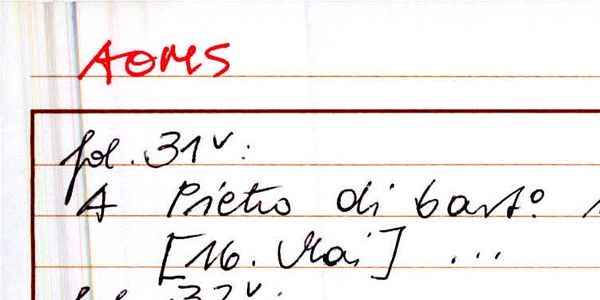 AOMS
fol. 31v:
A Pietro di barto
[16. Mai] ...
fol. 32v: